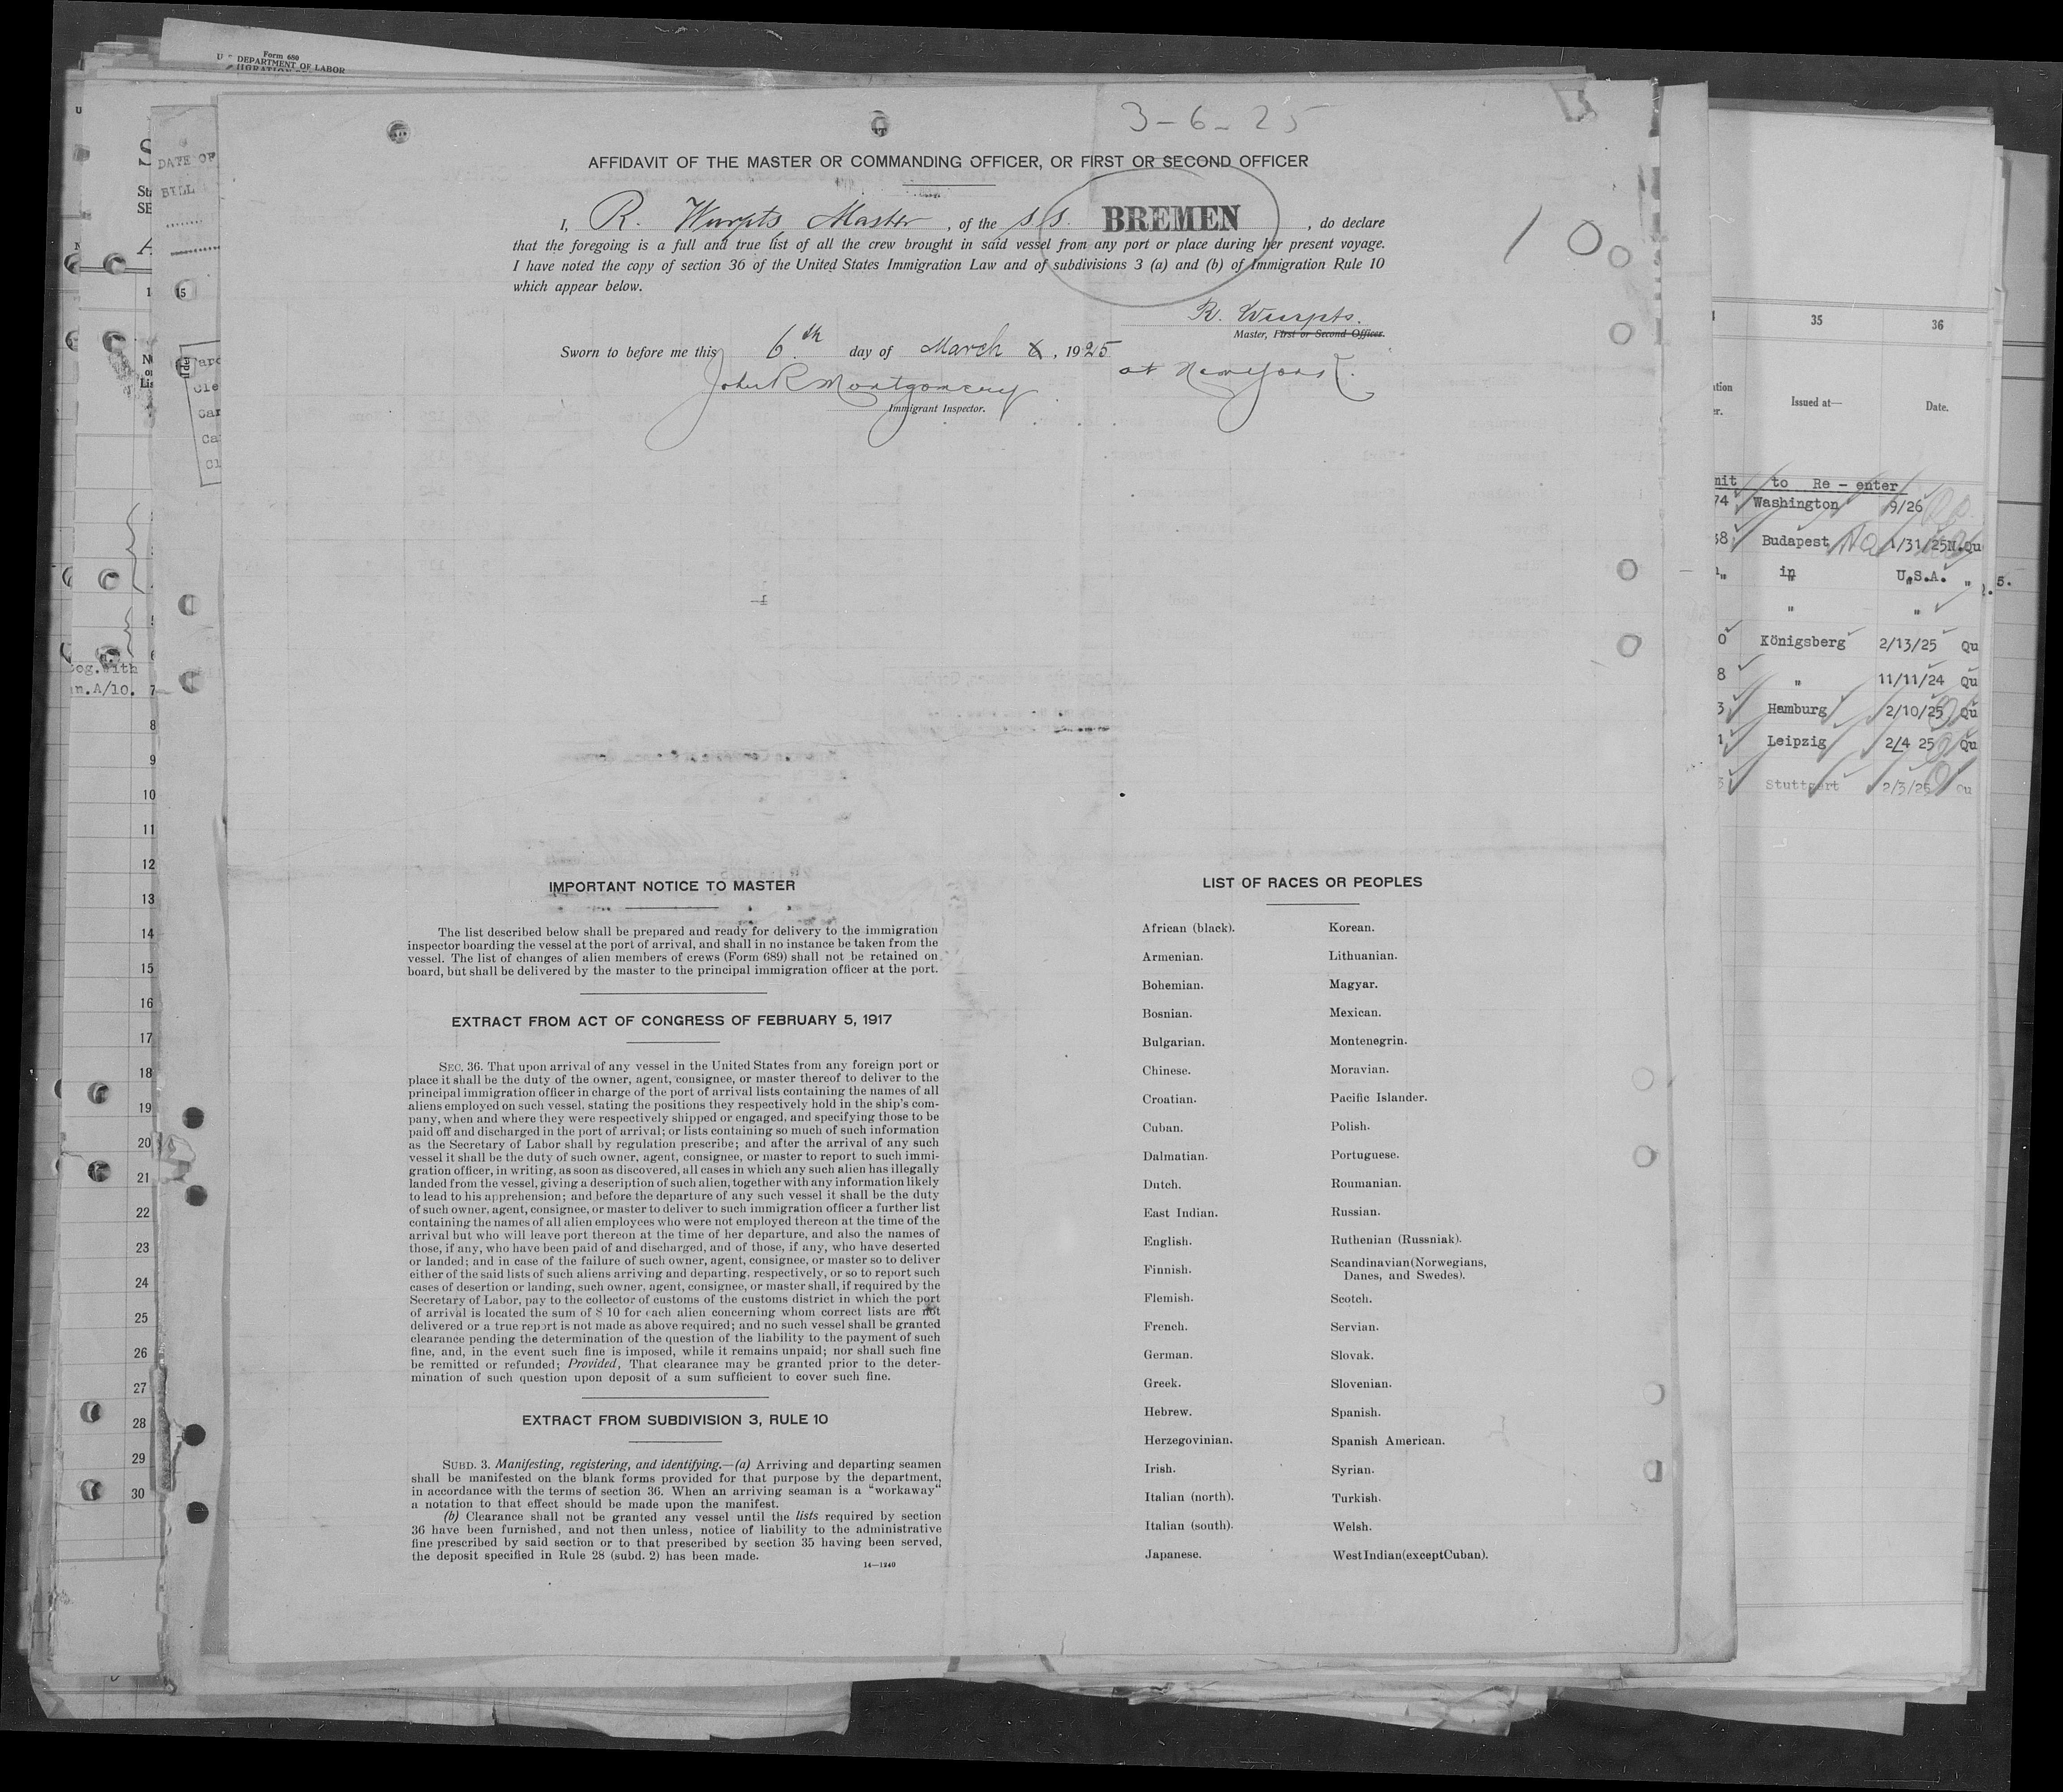 Form 680
DEPARTMENT OF LABOR
3-6-25
AFFIDAVIT OF THE MASTER OR COMMANDING OFFICER, OR FIRST OR SECOND OFFICER
I, R. Wurpts, Master, of the S.S. BREMEN, do declare
that the foregoing is a full and true list of all the crew brought in said vessel from any port or place during her present voyage.
I have noted the copy of section 36 of the United States Immigration Law and of subdivisions 3 (a) and (b) of Immigration Rule 10
which appear below.
R. Wurpts.
Master, First or Second Officer.
Sworn to before me this 6th day of March 6, 1925
at New York.
John R Montgomery
Immigrant Inspector.
IMPORTANT NOTICE TO MASTER
The list described below shall be prepared and ready for delivery to the immigration
inspector boarding the vessel at the port of arrival, and shall in no instance be taken from the
vessel. The list of changes of alien members of crews (Form 689) shall not be retained on
board, but shall be delivered by the master to the principal immigration officer at the port.
EXTRACT FROM ACT OF CONGRESS OF FEBRUARY 5, 1917
SEC. 36. That upon arrival of any vessel in the United States from any foreign port or
place it shall be the duty of the owner, agent, consignee, or master thereof to deliver to the
principal immigration officer in charge of the port of arrival lists containing the names of all
aliens employed on such vessel, stating the positions they respectively hold in the ship's com-
pany, when and where they were respectively shipped or engaged, and specifying those to be
paid off and discharged in the port of arrival; or lists containing so much of such information
as the Secretary of Labor shall by regulation prescribe; and after the arrival of any such
vessel it shall be the duty of such owner, agent, consignee, or master to report to such immi-
gration officer, in writing, as soon as discovered, all cases in which any such alien has illegally
landed from the vessel, giving a description of such alien, together with any information likely
to lead to his apprehension; and before the departure of any such vessel it shall be the duty
of such owner, agent, consignee, or master to deliver to such immigration officer a further list
containing the names of all alien employees who were not employed thereon at the time of the
arrival but who will leave port thereon at the time of her departure, and also the names of
those, if any, who have been paid of and discharged, and of those, if any, who have deserted
or landed; and in case of the failure of such owner, agent, consignee, or master so to deliver
either of the said lists of such aliens arriving and departing, respectively, or so to report such
cases of desertion or landing, such owner, agent, consignee, or master shall, if required by the
Secretary of Labor, pay to the collector of customs of the customs district in which the port
of arrival is located the sum of $ 10 for each alien concerning whom correct lists are not
delivered or a true report is not made as above required; and no such vessel shall be granted
clearance pending the determination of the question of the liability to the payment of such
fine, and, in the event such fine is imposed, while it remains unpaid; nor shall such fine
be remitted or refunded; Provided, That clearance may be granted prior to the deter-
mination of such question upon deposit of a sum sufficient to cover such fine.
EXTRACT FROM SUBDIVISION 3, RULE 10
SUBD. 3. Manifesting, registering, and identifying.—(a) Arriving and departing seamen
shall be manifested on the blank forms provided for that purpose by the department,
in accordance with the terms of section 36. When an arriving seaman is a "workaway"
a notation to that effect should be made upon the manifest.
(b) Clearance shall not be granted any vessel until the lists required by section
36 have been furnished, and not then unless, notice of liability to the administrative
fine prescribed by said section or to that prescribed by section 35 having been served,
the deposit specified in Rule 28 (subd. 2) has been made.
14—1240
LIST OF RACES OR PEOPLES
African (black).
Armenian.
Bohemian.
Bosnian.
Bulgarian.
Chinese.
Croatian.
Cuban.
Dalmatian.
Dutch.
East Indian.
English.
Finnish.
Flemish.
French.
German.
Greek.
Hebrew.
Herzegovinian.
Irish.
Italian (north).
Italian (south).
Japanese.
Korean.
Lithuanian.
Magyar.
Mexican.
Montenegrin.
Moravian.
Pacific Islander.
Polish.
Portuguese.
Roumanian.
Russian.
Ruthenian (Russniak).
Scandinavian (Norwegians,
Danes, and Swedes).
Scotch.
Servian.
Slovak.
Slovenian.
Spanish.
Spanish American.
Syrian.
Turkish.
Welsh.
West Indian (except Cuban).
35 36
Issued at— Date.
to Re - enter
74 Washington 9/26
38 Budapest 1/31/25 N.Qu
" in U.S.A. "
" "
0 Königsberg 2/13/25 Qu
8 " 11/11/24 Qu
3 Hamburg 2/10/25 Qu
1 Leipzig 2/4 25 Qu
3 Stuttgart 2/3/25 Qu
DATE OF
BILL
A/10. 7
8
9
10
11
12
13
14
15
16
17
18
19
20
21
22
23
24
25
26
27
28
29
30